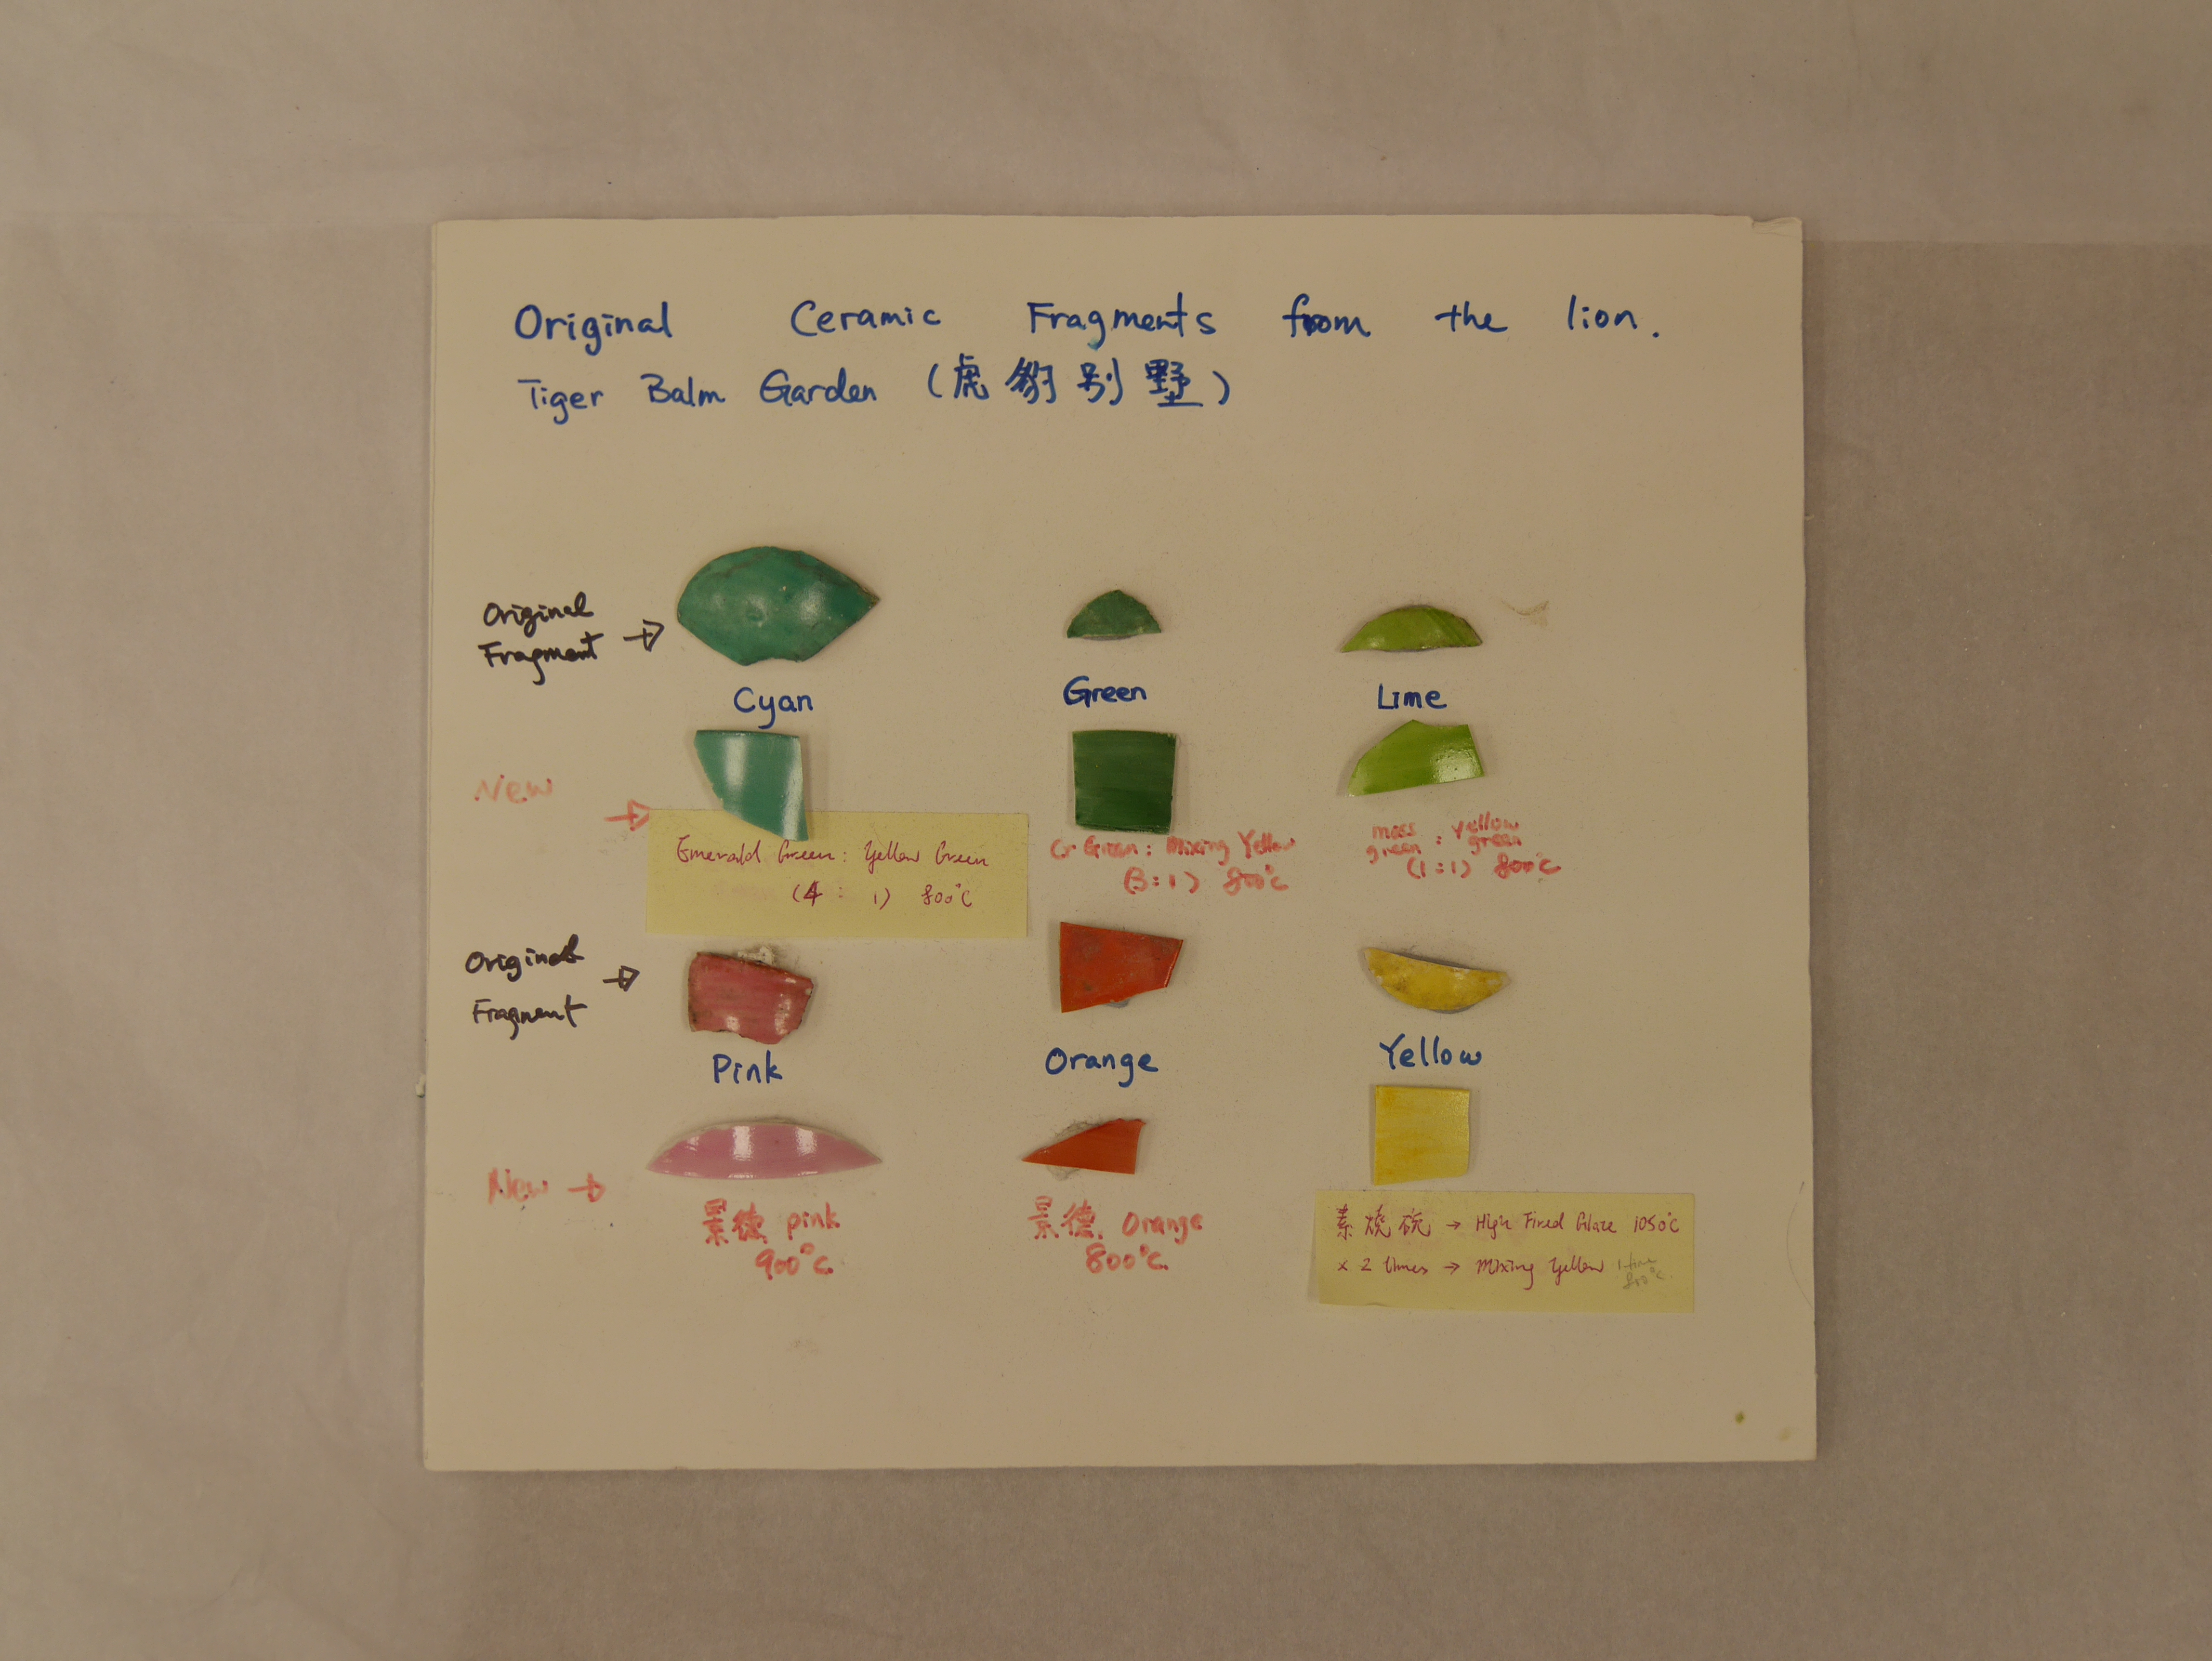 Original Ceramic Fragments from the lion.
Tiger Balm Garden (虎豹别墅)
Original
Fragment →
Cyan
Green
Lime
New →
Emerald Green: Yellow Green
(4 : 1) 800°C
Cr Green: Mixing Yellow
(3:1) 800°C
moss green : yellow green
(1:1) 800°C
Original →
Fragment
Pink
Orange
Yellow
New →
景德 pink
900°C
景德. Orange
800°C
素烧砙 → High Fired Glaze 1050°C
× 2 times → Mixing Yellow 1 time
800°C